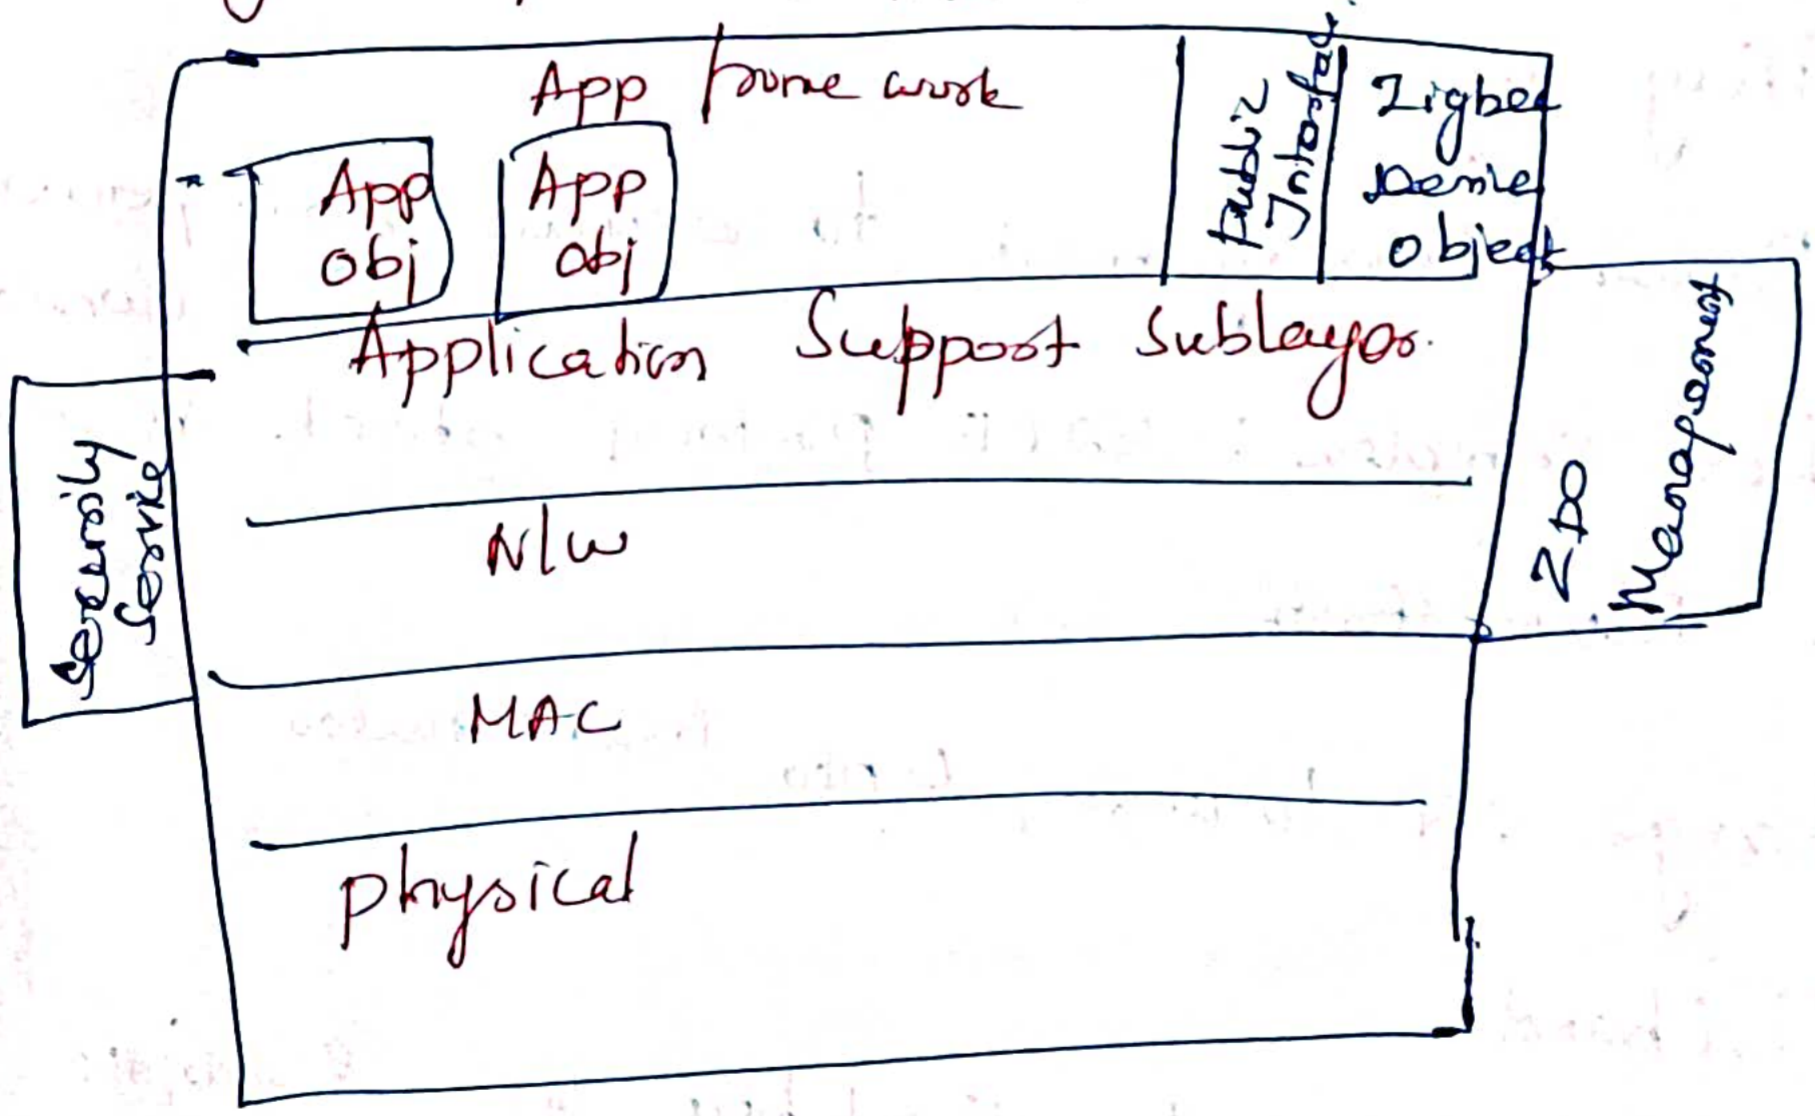 App frame work
Public
Interface
Zigbee
Device
Object
App
obj
App
obj
Application Support Sublayer.
Security
Service
ZDO
Management
N/w
MAC
physical